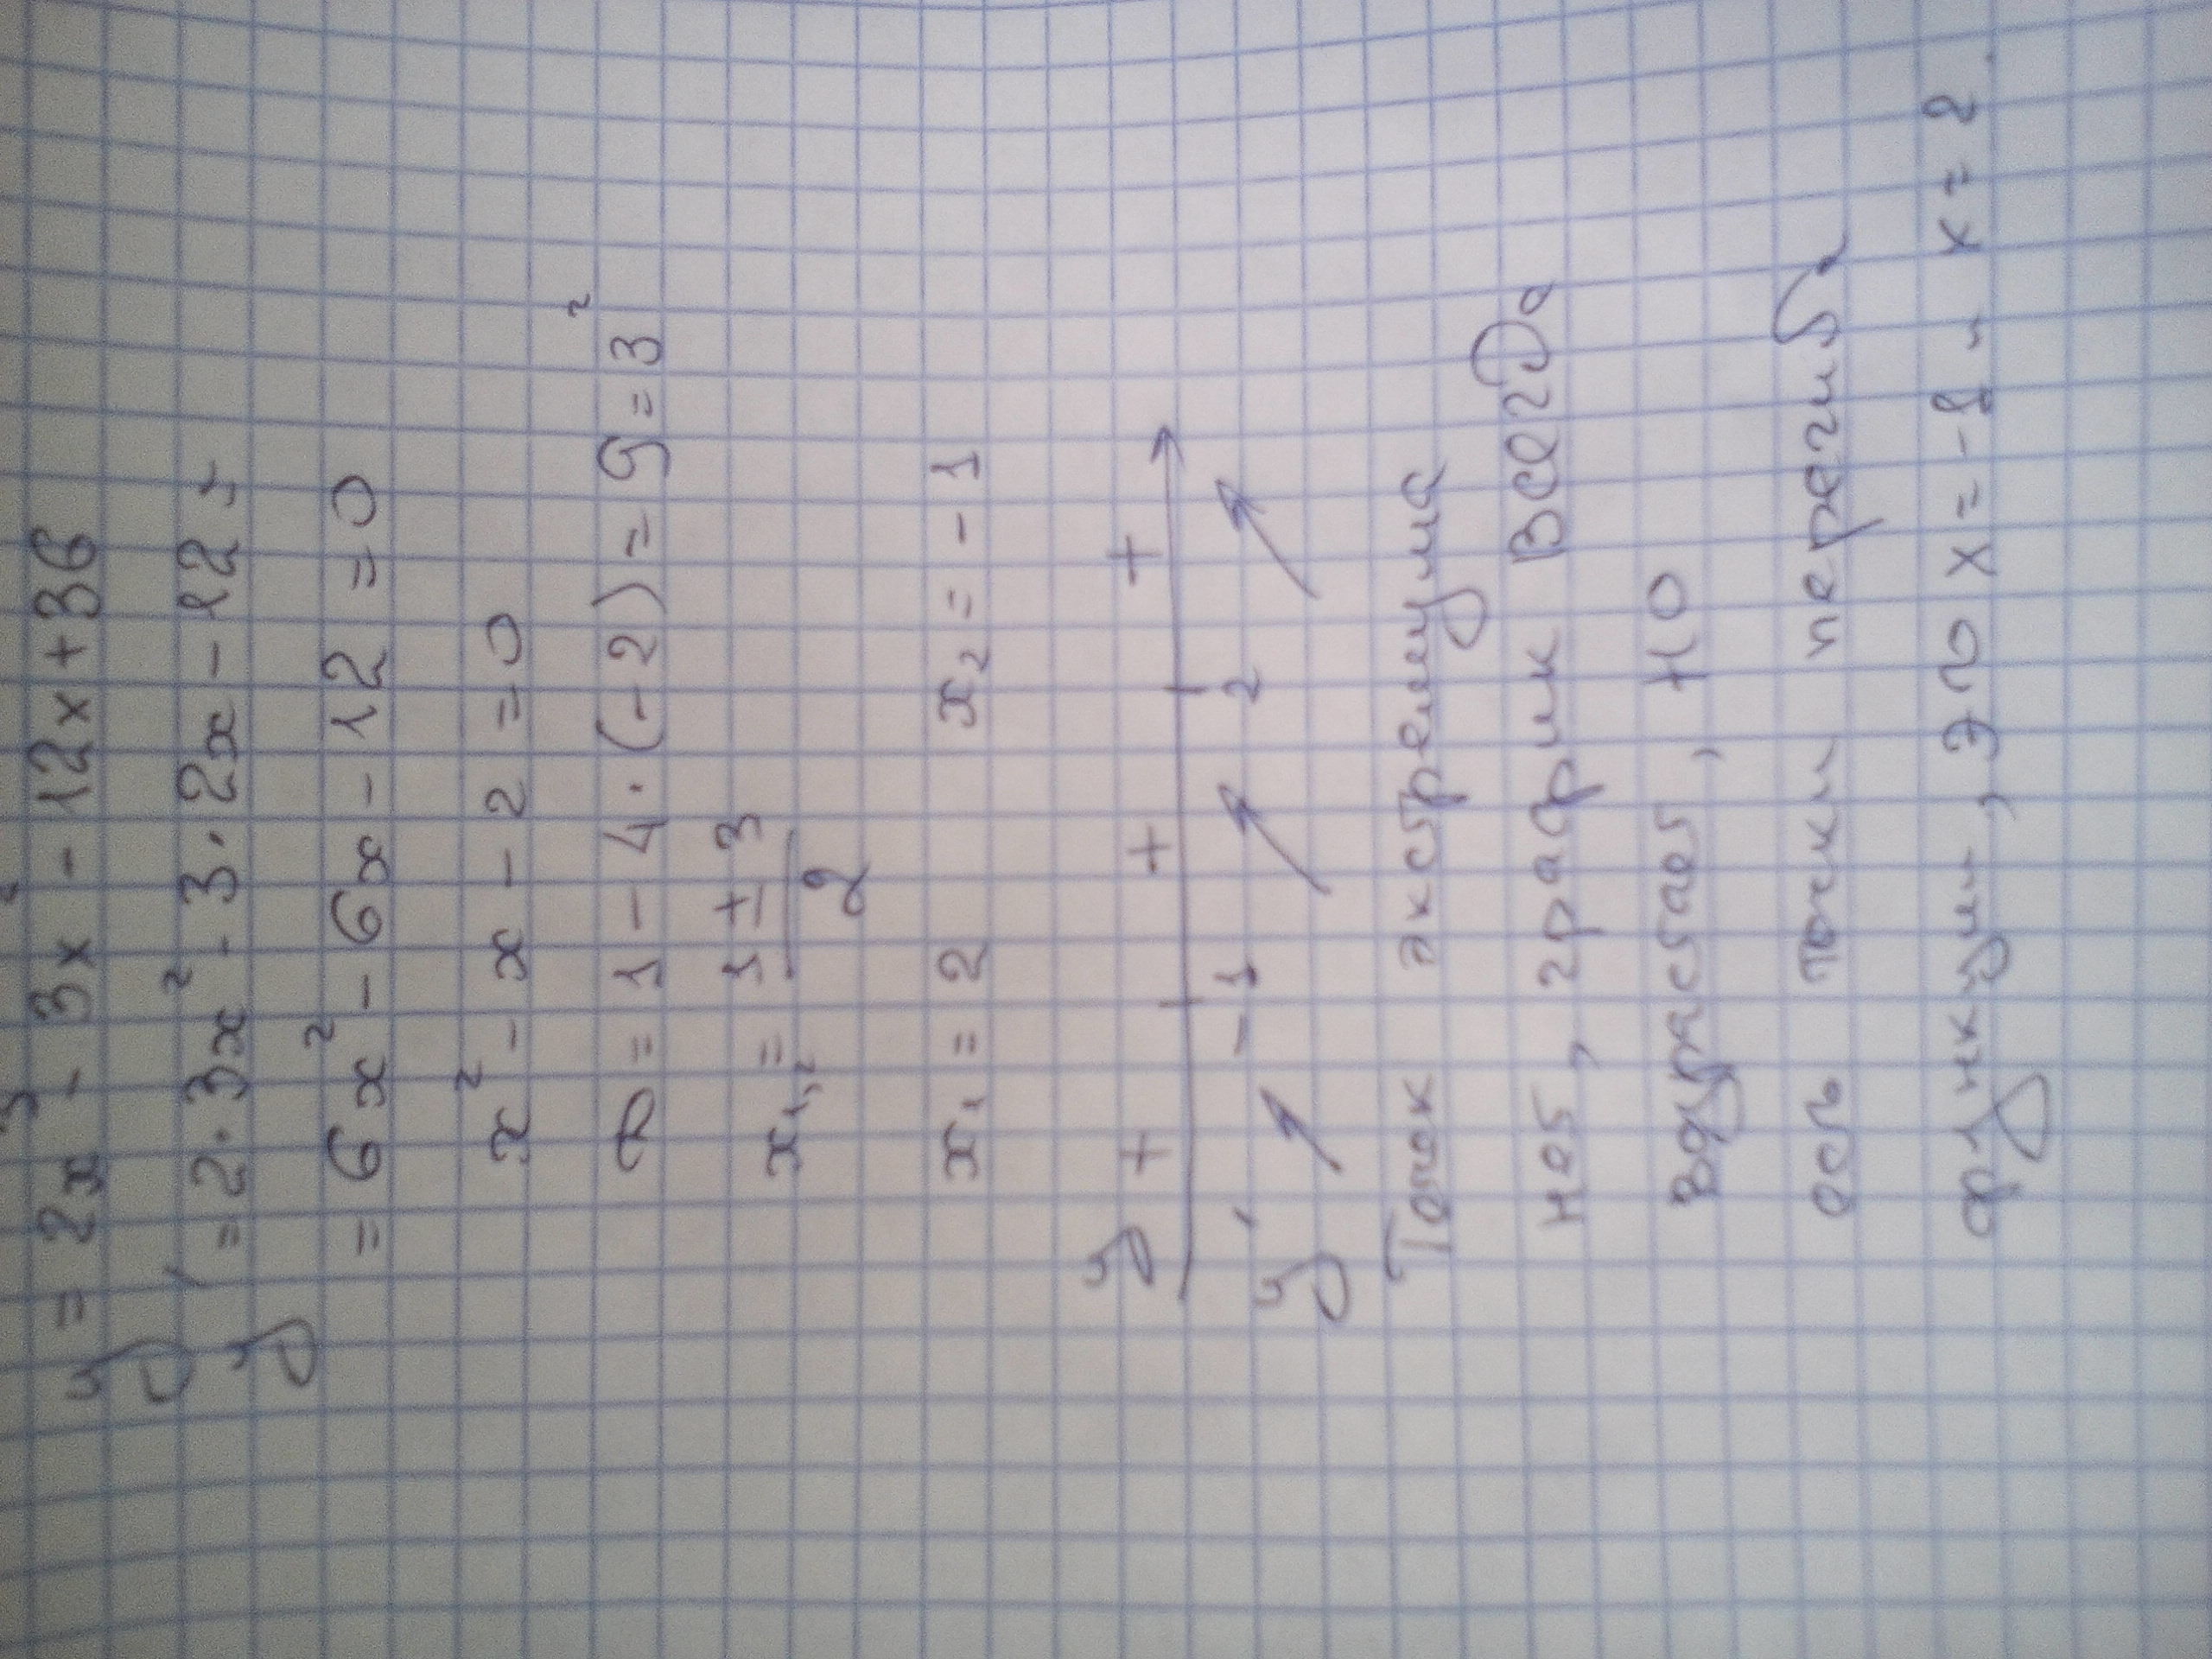 y = 2x³ - 3x² - 12x + 36
y' = 2·3x² - 3·2x - 12 =
= 6x² - 6x - 12 = 0
x² - x - 2 = 0
D = 1 - 4·(-2) = 9 = 3²
x₁,₂ = (1 ± 3)/2
x₁ = 2 x₂ = -1
y + + +
y' -1 2
Точек экстремума
нет, график всегда
возрастает, но
есть точки перегиба
функции, это x = -1 и x = 2.